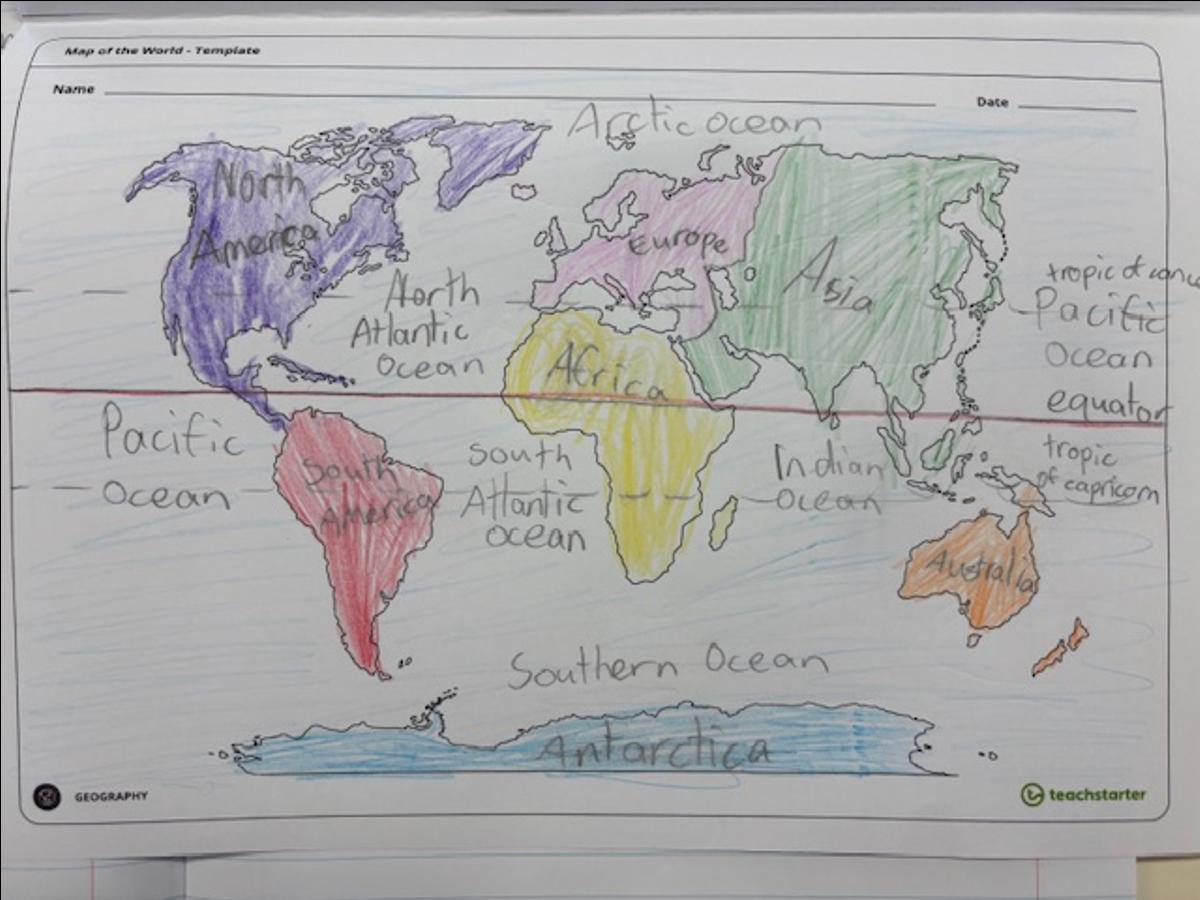 Map of the World - Template
Name
Date
Arctic ocean
North
America
Europe
Asia
North
Atlantic
Ocean
tropic of canc
Pacific
Ocean
Africa
equator
Pacific
Ocean
South
America
South
Atlantic
ocean
Indian
Ocean
tropic
of capricorn
Australia
Southern Ocean
Antarctica
GEOGRAPHY
teachstarter